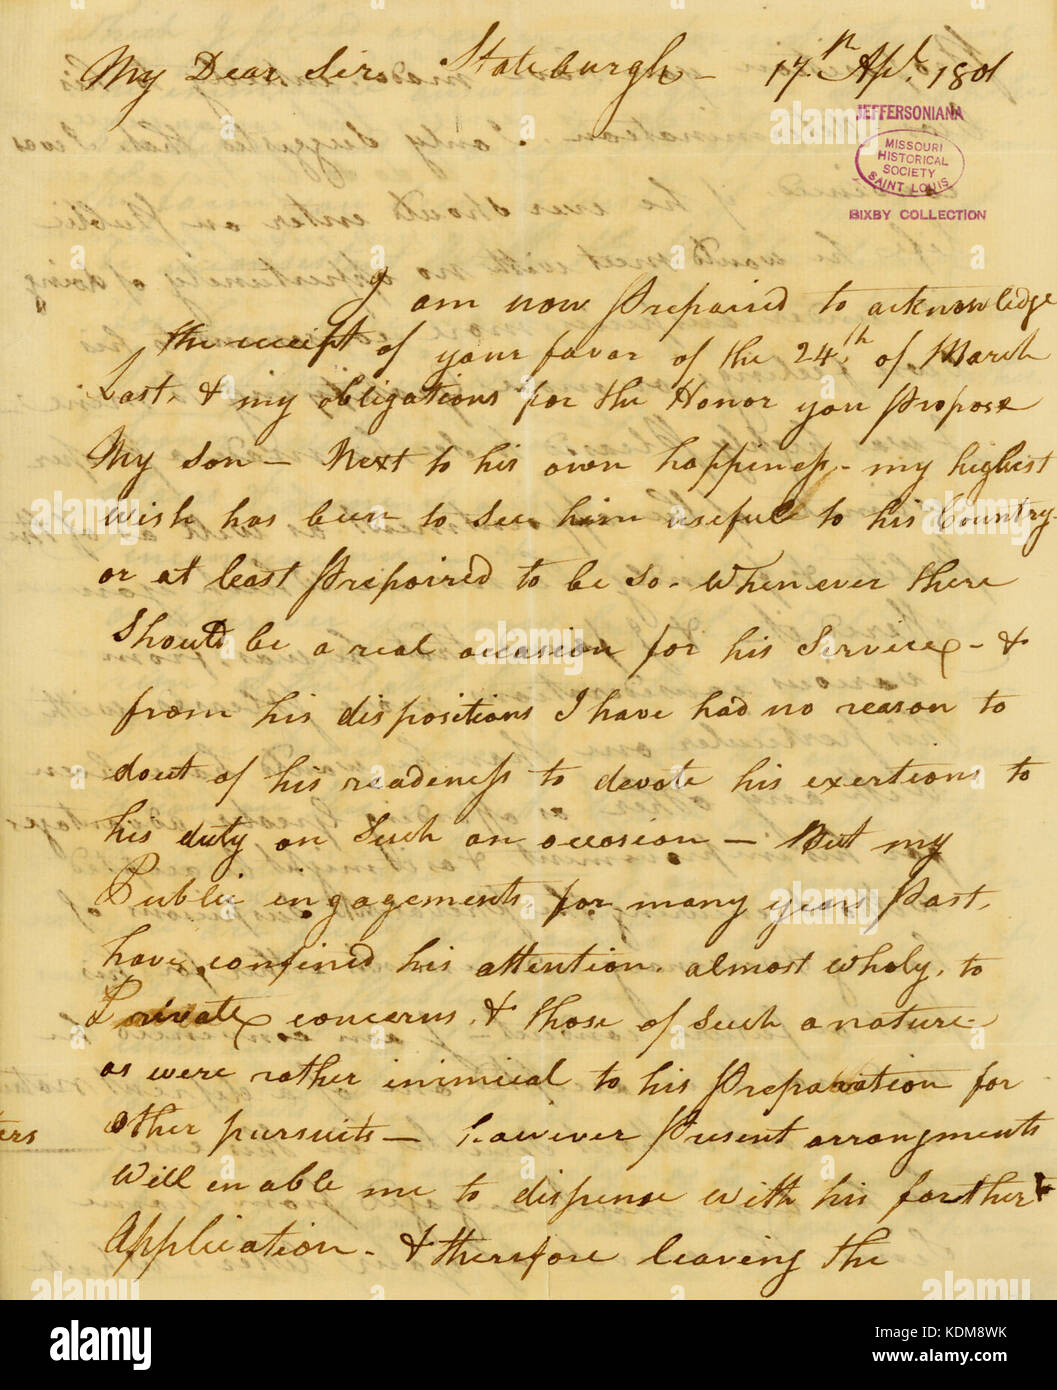 My Dear Sir Stateburgh - 17th Apl. 1801
JEFFERSONIANA
MISSOURI
HISTORICAL
SOCIETY
SAINT LOUIS
BIXBY COLLECTION
I am now Prepaired to acknowledge
the receipt of your favor of the 24th. of March
Last, & my obligations for the Honor you Propose
My son — Next to his own happiness - my highest
wish has been to see him useful to his Country -
or at least Prepaired to be so - Whenever there
Should be a real occasion for his Service - &
from his dispositions I have had no reason to
dout of his readeness to devote his exertions to
his duty on Such an occasion — But my
Public engagements, for many years Past,
have confined his attention, almost wholy, to
Private concerns, & those of such a nature
as were rather inimical to his Preparation for
other pursuits — however Present arrangments
Will enable me to dispense with his farther
Application - & therefore leaving the
ters
alamy
Image ID: KDM8WK
www.alamy.com